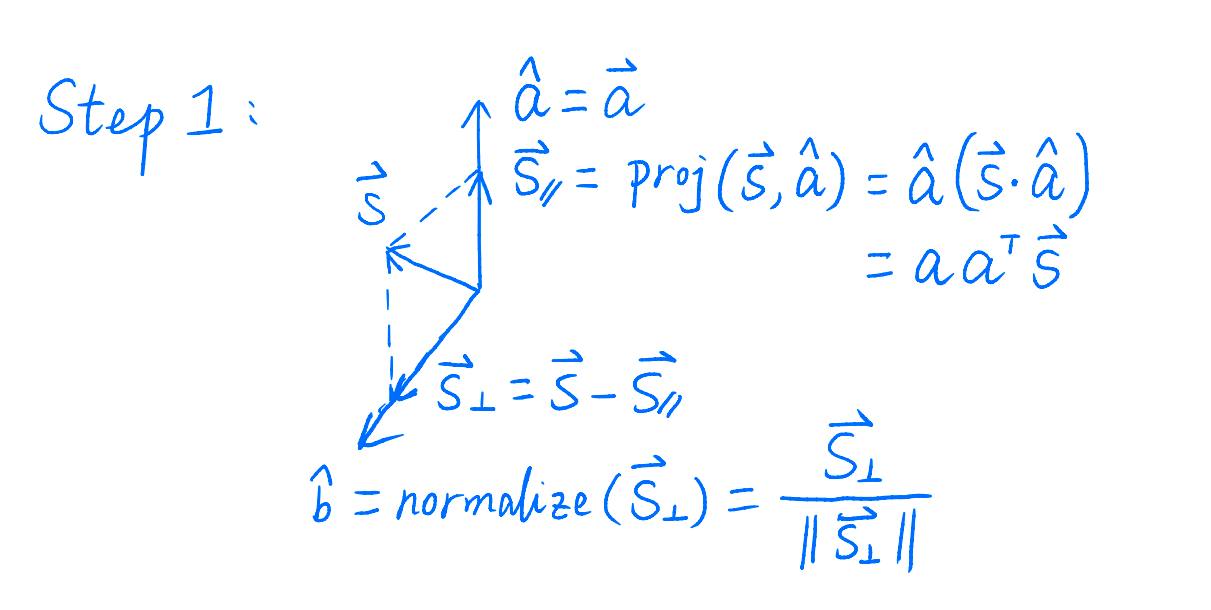 Step 1:
â = a⃗
s⃗
S⃗∥ = proj(s⃗, â) = â(s⃗·â)
= a aᵀ s⃗
S⃗⊥ = s⃗ − S⃗∥
b̂ = normalize(S⃗⊥) = S⃗⊥ / ‖S⃗⊥‖